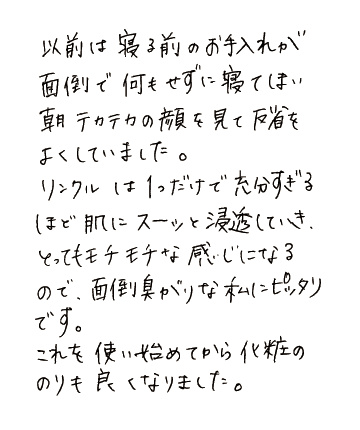 以前は寝る前のお手入れが
面倒で何もせずに寝てしまい
朝テカテカの顔を見て反省を
よくしていました。
リンクルは1つだけで充分すぎる
ほど肌にスーッと浸透していき、
とってもモチモチな感じになる
ので、面倒臭がりな私にピッタリ
です。
これを使い始めてから化粧の
のりも良くなりました。